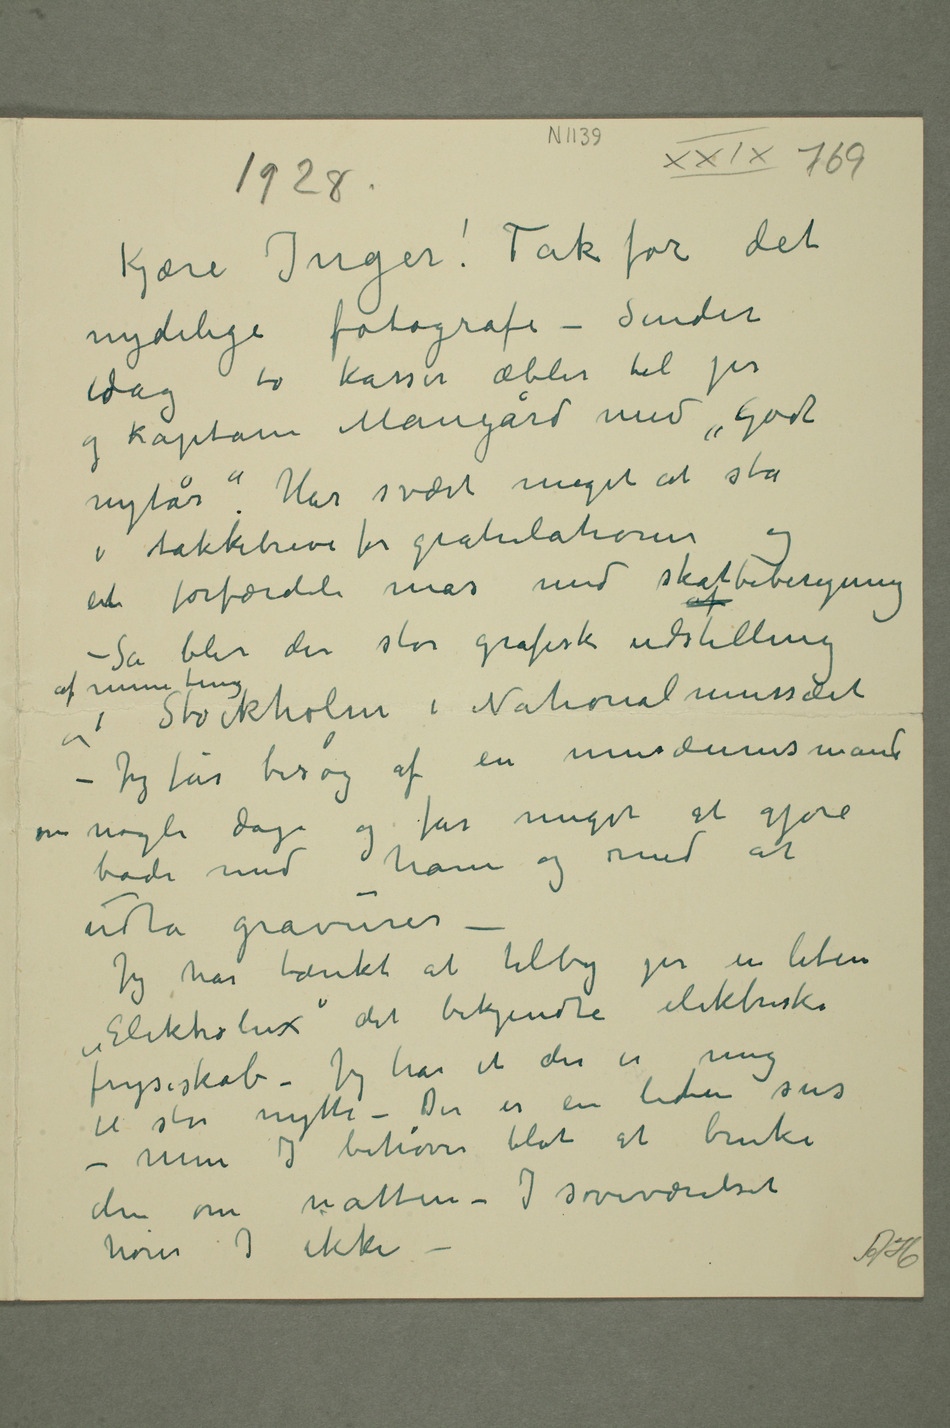 N 1139
XXIX 769
1928.
Kjære Inger! Tak for det
nydelige fotografi – Sender
idag to kasser æbler til jer
og Kaptain Mangård med „Godt
nytår“. Har svært meget at stå
i takkebreve for gratulationer og
et forfærdeli mas med skatbeberegning
– Så blir der stor grafisk udstilling
af mine ting
i Stockholm i Nationalmussæet
– Jeg får besøg af en musæumsmand
om nogle dage og får meget at gjøre
både med ham og med at
udta gravurer –
Jeg har tænkt at tilby jer en liten
„Elektrolux“ det bekjendte elektriske
fryseskab – Jeg har et der er meg
til stor nytte – Der er en liden sus
– men I behøver blot at bruke
den om natten – I soveværelset
hører I ikke –